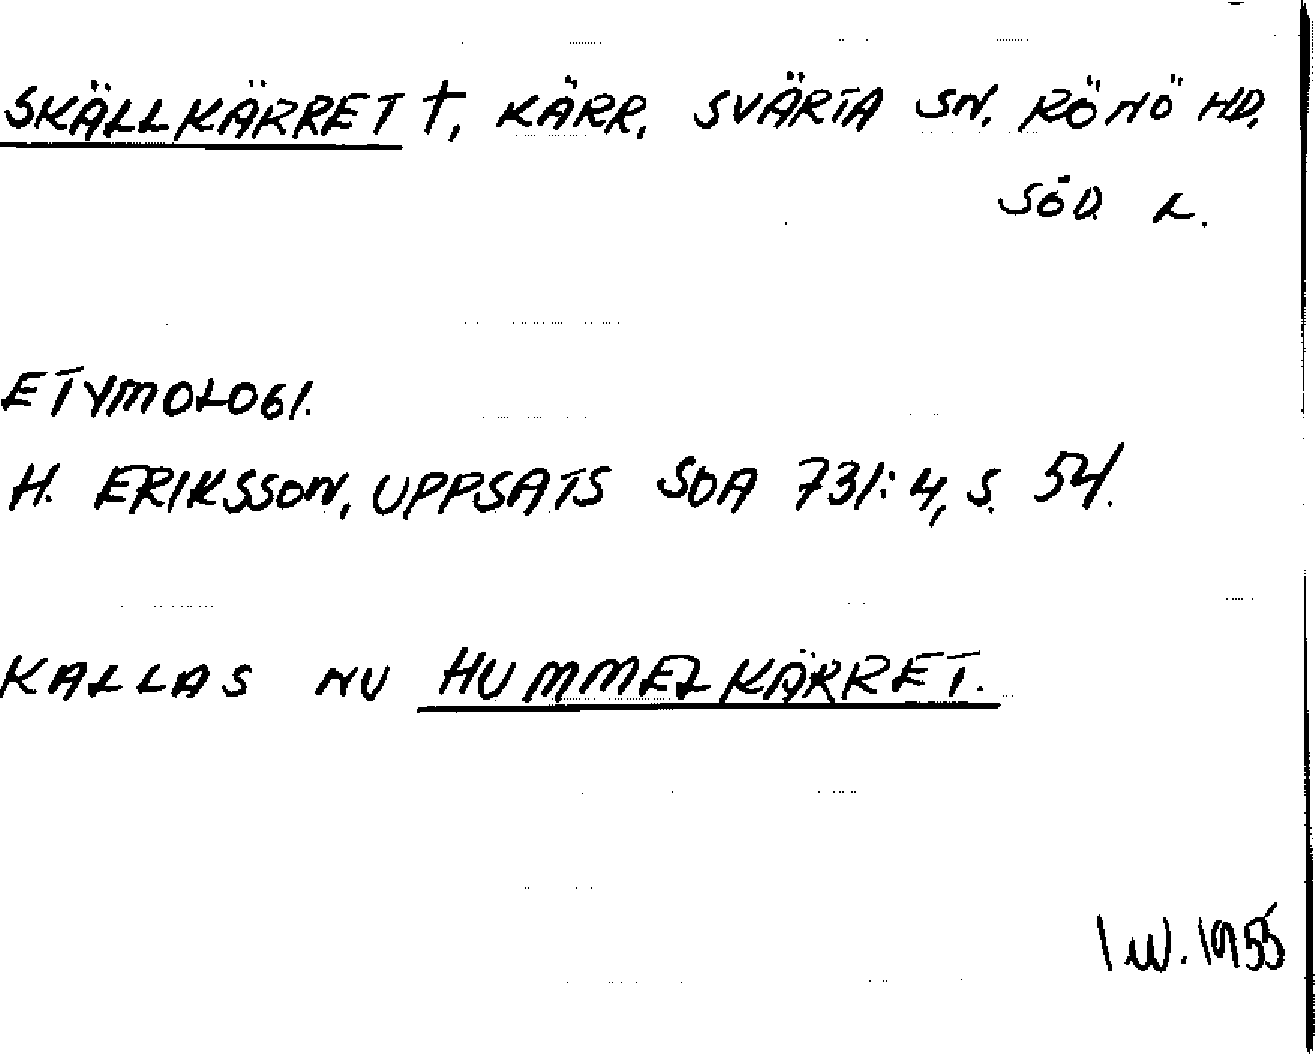 SKÄLLKÄRRET †, KÄRR, SVÄRTA SN. RÖNÖ HD.
SÖD. L.
ETYMOLOGI.
H. ERIKSSON, UPPSATS SOA 731:4, S. 54.
KALLAS NU HUMMELKÄRRET.
I W. 1955